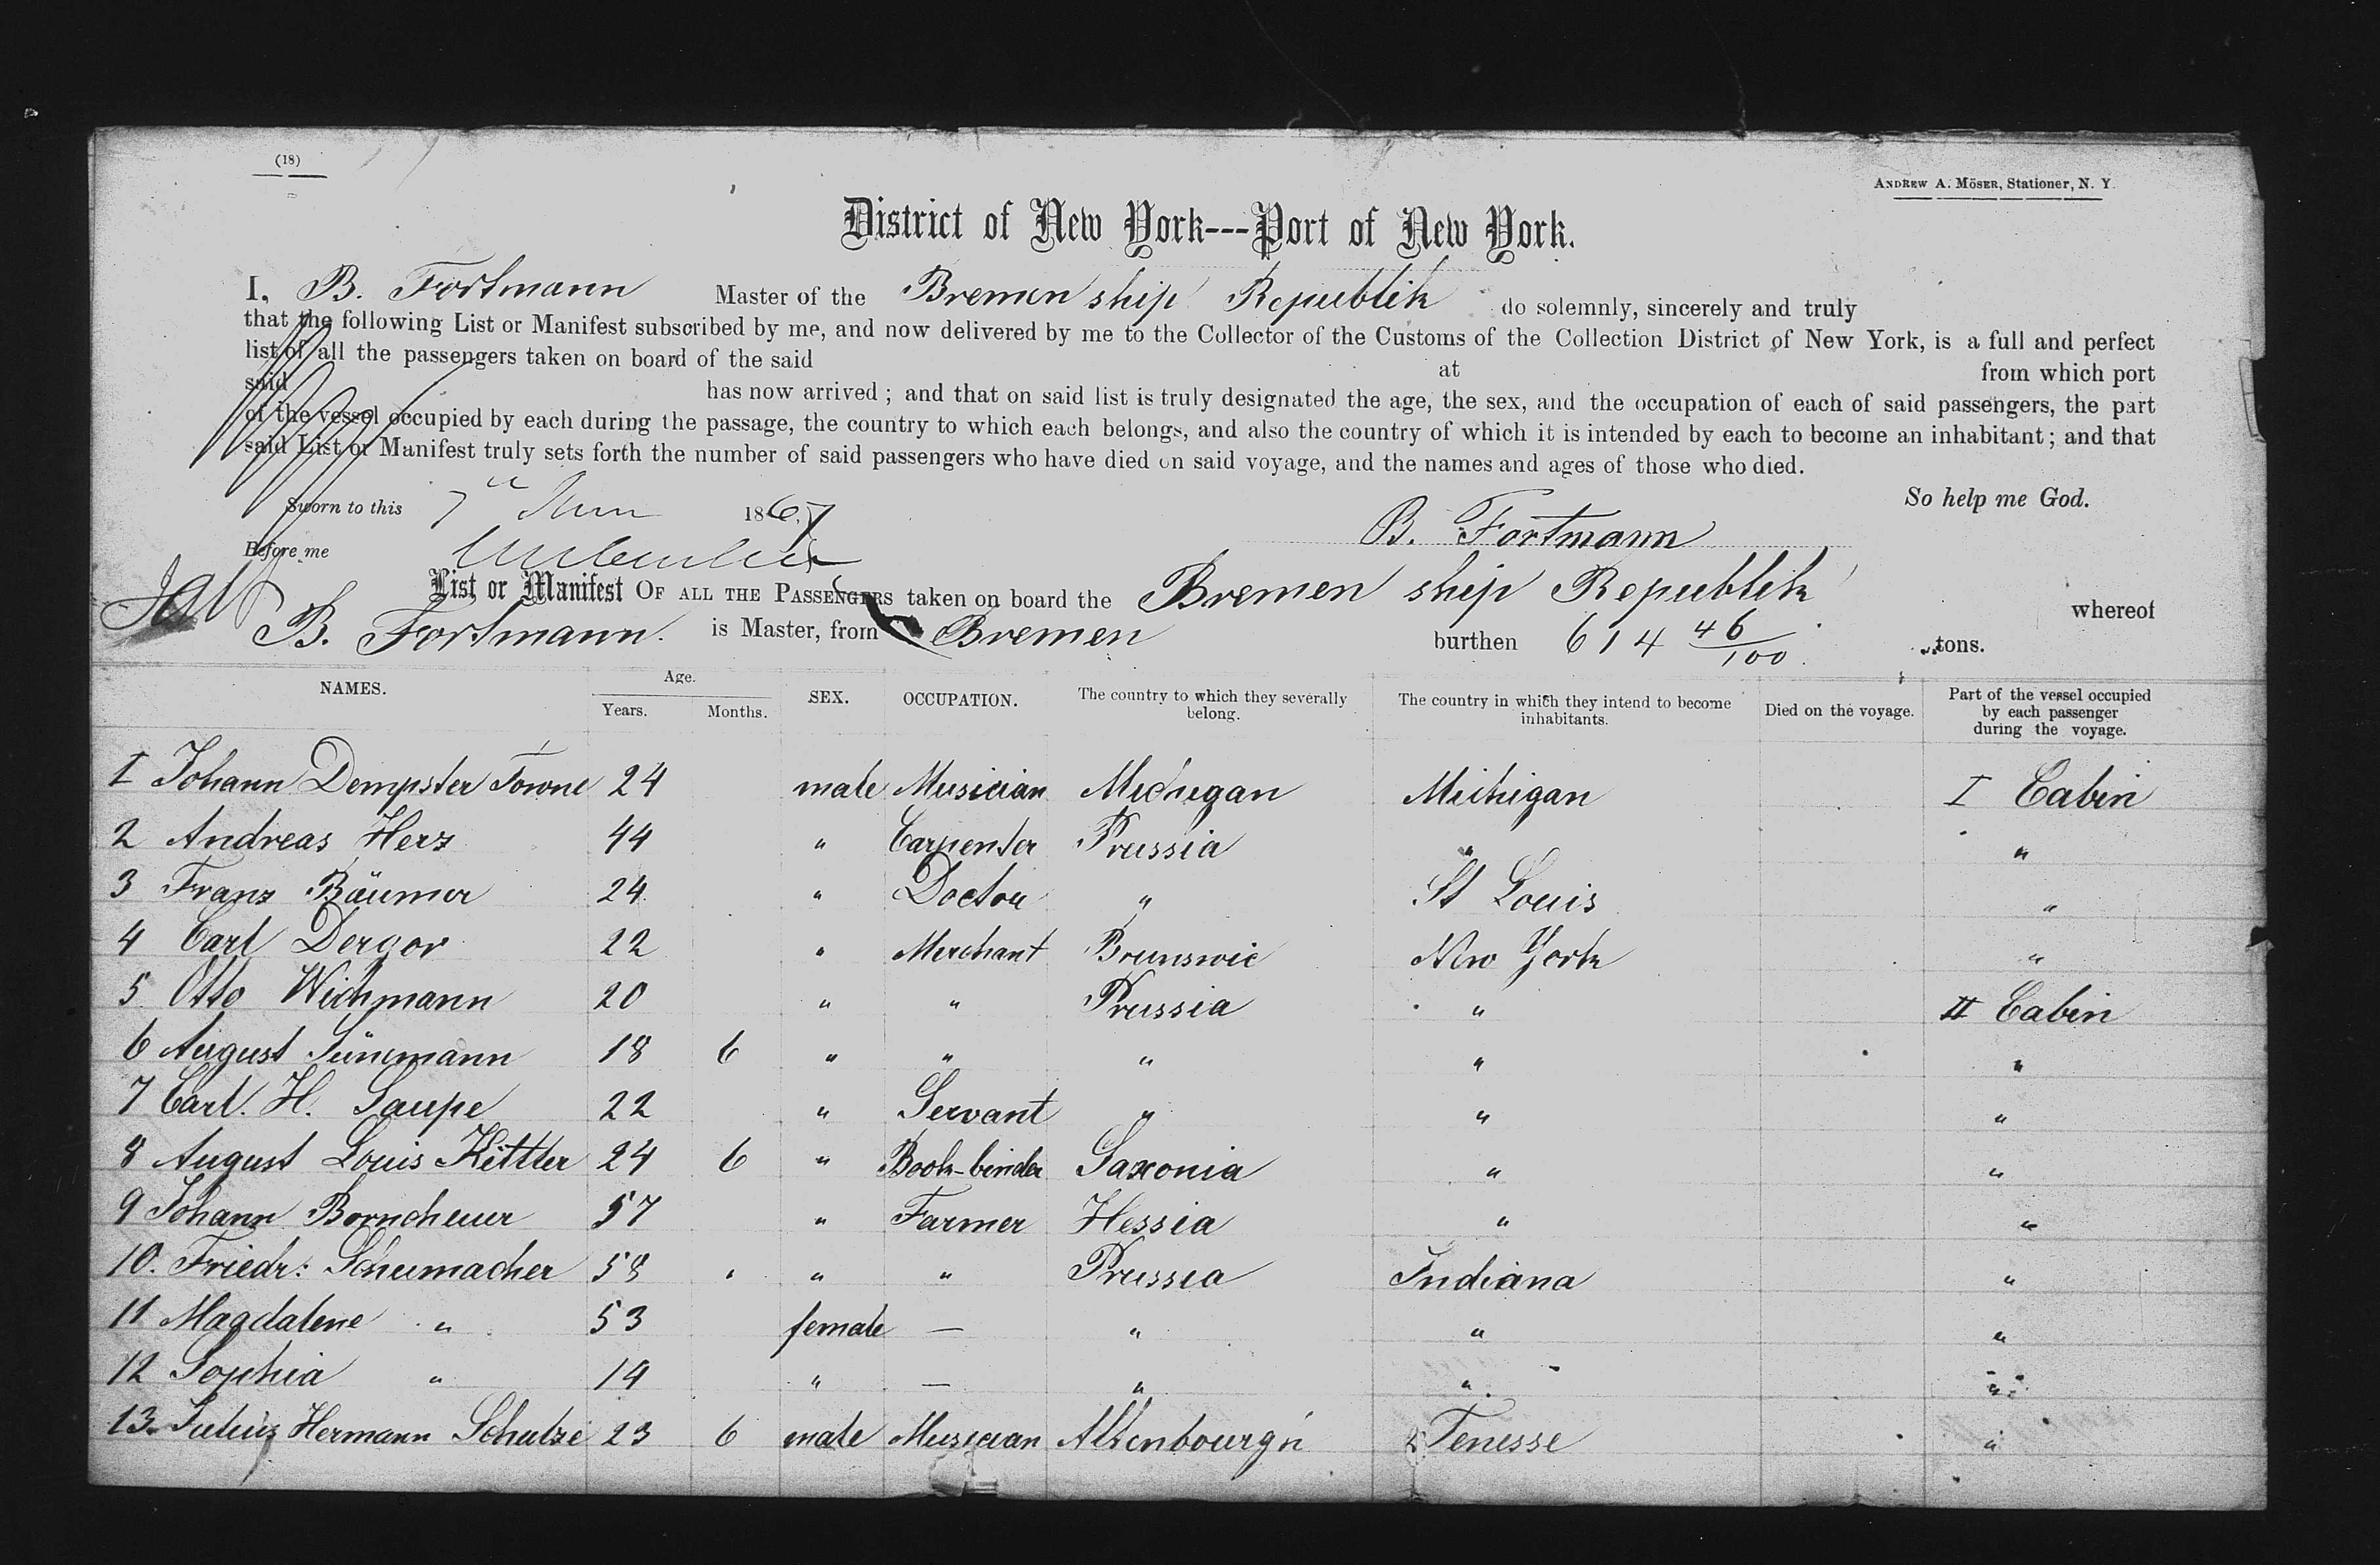 (18)
ANDREW A. MÖSER, Stationer, N. Y.
District of New York---Port of New York.
I, B. Fortmann Master of the Bremen ship Republik do solemnly, sincerely and truly
that the following List or Manifest subscribed by me, and now delivered by me to the Collector of the Customs of the Collection District of New York, is a full and perfect
list of all the passengers taken on board of the said at from which port
said has now arrived; and that on said list is truly designated the age, the sex, and the occupation of each of said passengers, the part
of the vessel occupied by each during the passage, the country to which each belongs, and also the country of which it is intended by each to become an inhabitant; and that
said List or Manifest truly sets forth the number of said passengers who have died on said voyage, and the names and ages of those who died.
So help me God.
Sworn to this 7" 1867
B. Fortmann
Before me
List or Manifest OF ALL THE PASSENGERS taken on board the Bremen ship Republik whereof
B. Fortmann. is Master, from Bremen burthen 614 46/100 tons.
NAMES. Age. Years. Months. SEX. OCCUPATION. The country to which they severally belong. The country in which they intend to become inhabitants. Died on the voyage. Part of the vessel occupied by each passenger during the voyage.
1 Johann Dempster Towne 24 male Musician Michigan Michigan I Cabin
2 Andreas Herz 44 " Carpenter Prussia " "
3 Franz Bäumer 24 " Doctor " St Louis "
4 Carl Dergor 22 " Merchant Brunswic New York "
5 Otto Wichmann 20 " " Prussia " II Cabin
6 August Sünemann 18 6 " " " " "
7 Carl. H. Saupe 22 " Servant " " "
8 August Louis Kittler 24 6 " Book-binder Saxonia " "
9 Johann Borncheuer 57 " Farmer Hessia " "
10. Friedr: Schumacher 58 " " Prussia Indiana "
11 Magdalene " 53 female — " " "
12 Sophia " 14 " — " " "
13. Julius Hermann Schulze 23 6 male Musician Altenbourgh Tenesse "